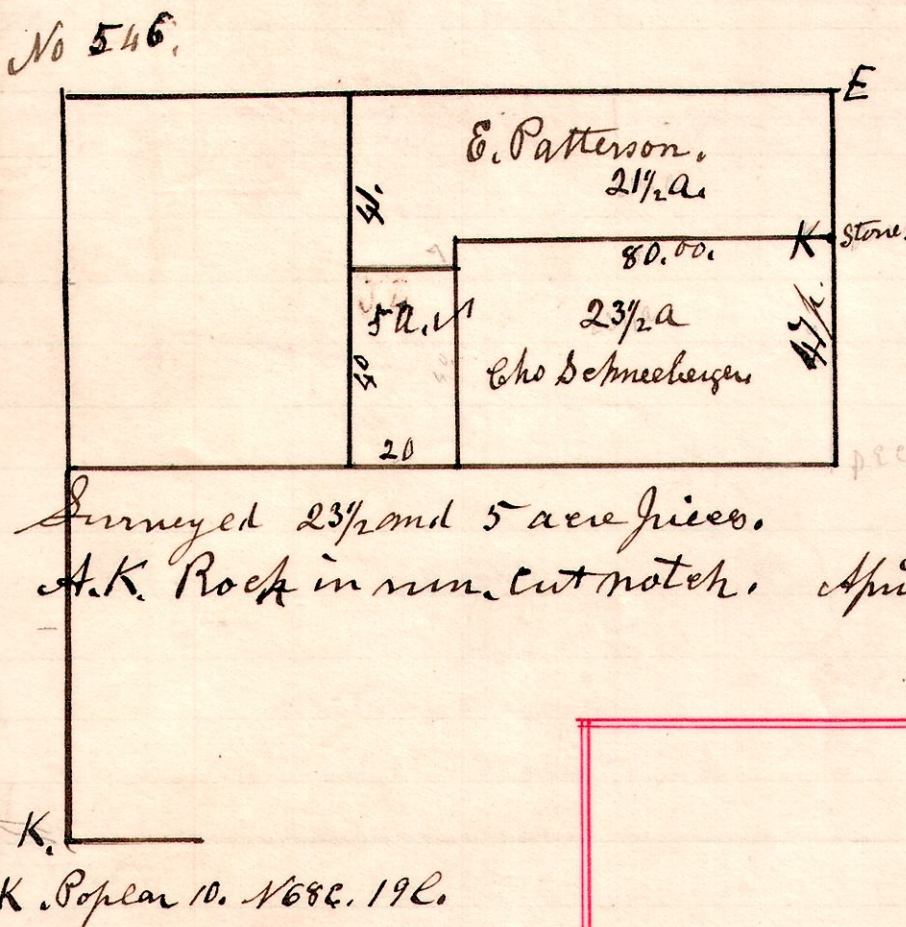 No 546.
E
E. Patterson.
21½ a.
41.
K Stone.
80.00.
5 a.
23½ a
47 p.
Chs Schneeberger
50
20
Surveyed 23½ and 5 acre pieces.
A.K. Rock in run. Cut notch.
K.
K. Poplar 10. N68E. 19l.